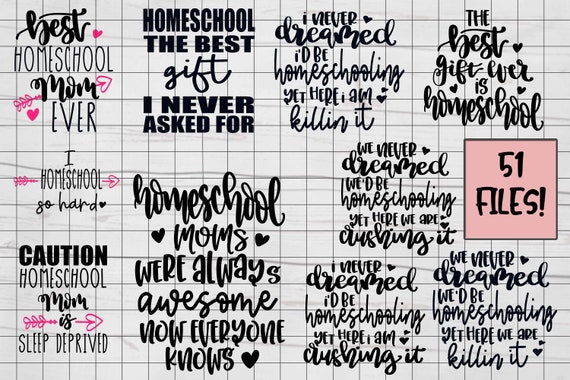 best
HOMESCHOOL
Mom
EVER
HOMESCHOOL
THE BEST
gift
I NEVER
ASKED FOR
i never
dreamed
i'D BE
homeschooling
YET HERE i AM
killin it
THE
best
gift ever
is
homeschool
I
HOMESCHOOL
so hard
CAUTION
HOMESCHOOL
Mom
is
SLEEP DEPRIVED
homeschool
MOMS
WERE ALWAYS
awesome
NOW EVERYONE
KNOWS
WE NEVER
dreamed
WE'D BE
homeschooling
YET HERE WE ARE
crushing it
51
FILES!
i NEVER
dreamed
i'D BE
homeschooling
YET HERE i AM
crushing it
WE NEVER
dreamed
WE'D BE
homeschooling
YET HERE WE ARE
killin it